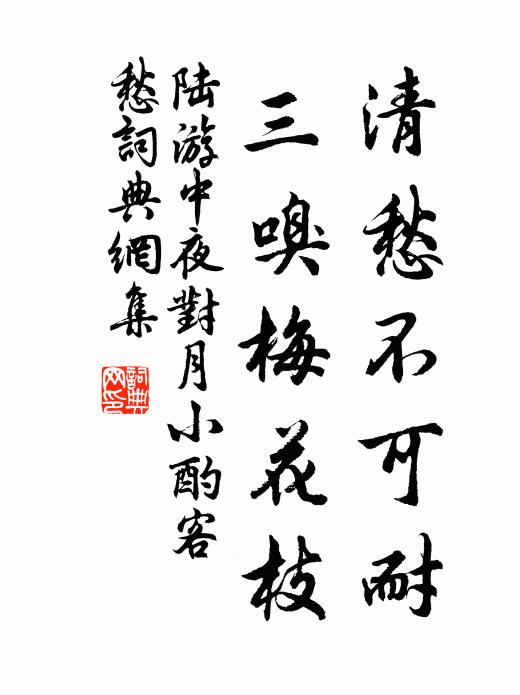 清愁不可耐
三嗅梅花枝
陆游中夜對月小酌客
愁詞典網集
詞典
网印